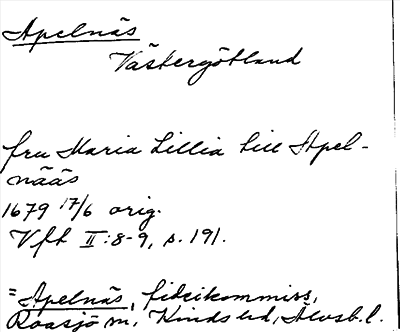 Apelnäs
Västergötland
fru Maria Lillia till Apel-
nääs
1679 17/6 orig.
Vft II:8-9, s. 191.
= Apelnäs, fideikommiss,
Roasjö sn, Kinds hd, Älvsb. l.